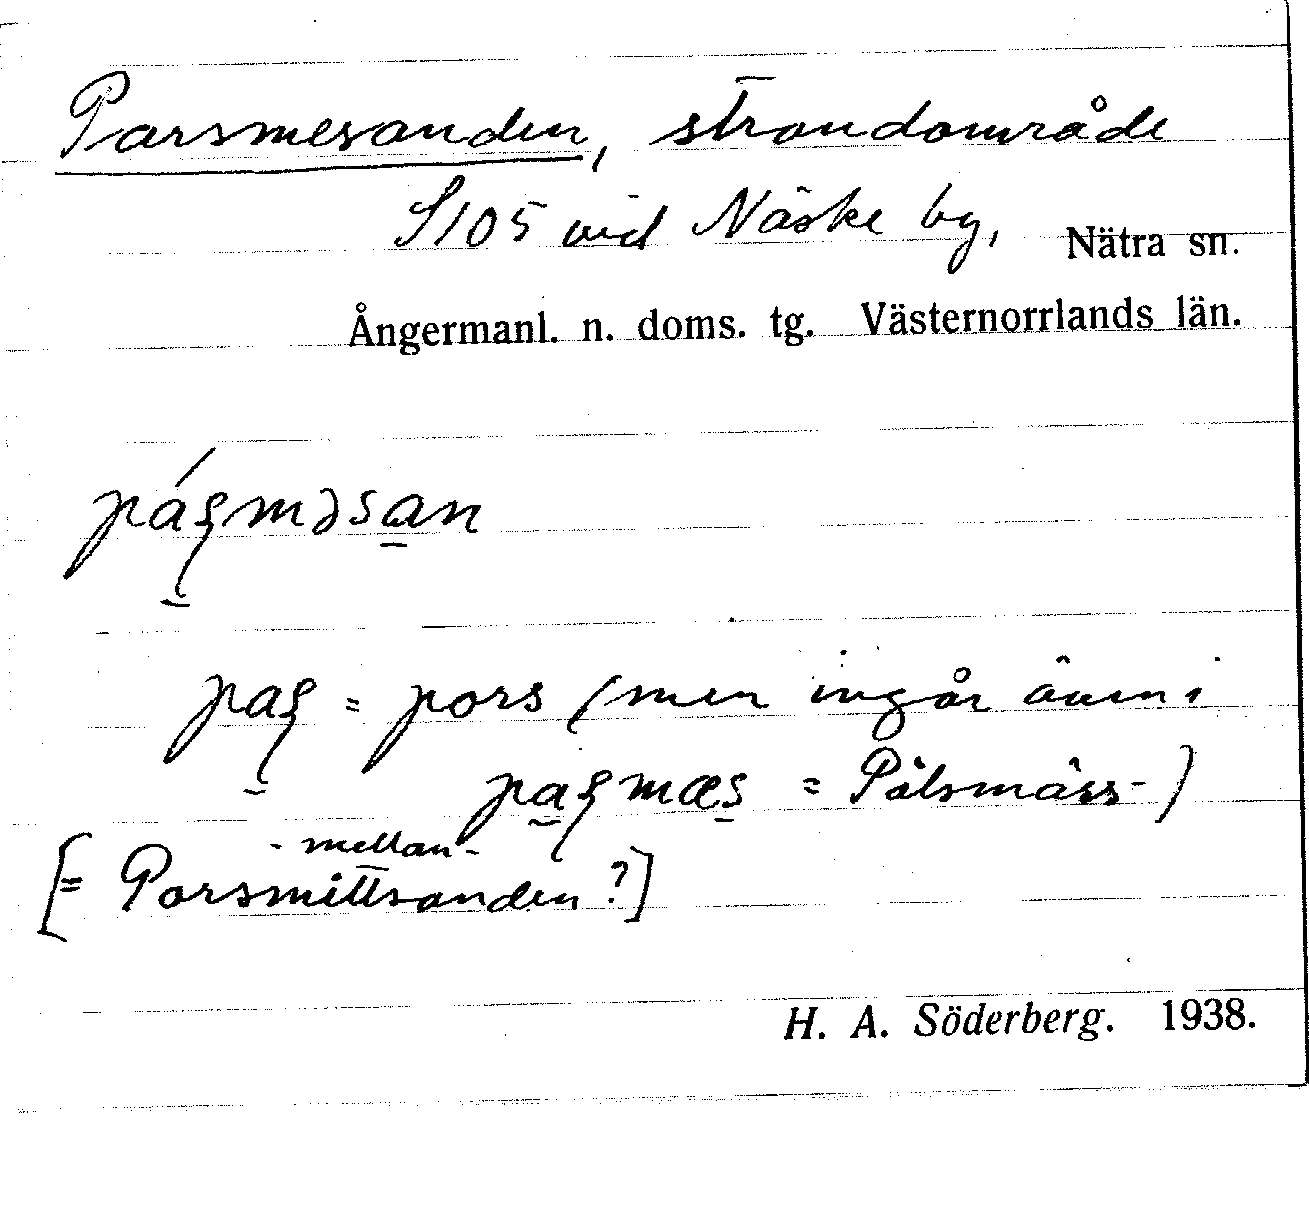 Parsmesanden, strandområde
S105 vid Näske by, Nätra sn.
Ångermanl. n. doms. tg. Västernorrlands län.
páʂməsan
paʂ = pors (men ingår även i
paʂmæs = Pålsmäss-)
-mellan-
[= Porsmittsanden?]
H. A. Söderberg. 1938.